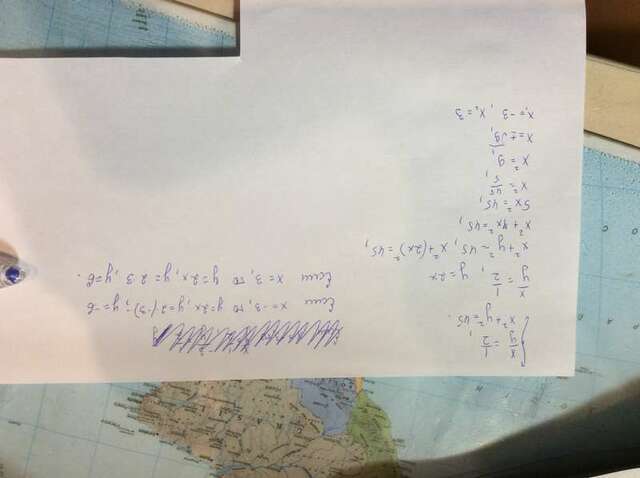 x/y = 1/2,
x² + y² = 45.
x/y = 1/2, y = 2x
x² + y² = 45, x² + (2x)² = 45,
x² + 4x² = 45,
5x² = 45,
x² = 45/5,
x² = 9,
x = ±√9,
x₁ = -3, x₂ = 3
Если x = -3, то y = 2x, y = 2·(-3), y = -6
Если x = 3, то y = 2x, y = 2·3, y = 6.